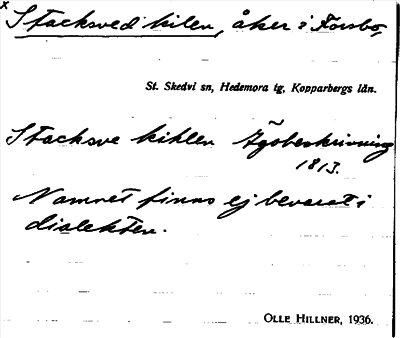 x Stacksvedkilen, åker i Forsbo,
St. Skedvi sn, Hedemora tg, Kopparbergs län.
Stacksve kihlen Ägobeskrivning
1813.
Namnet finns ej bevarat i
dialekten.
OLLE HILLNER, 1936.